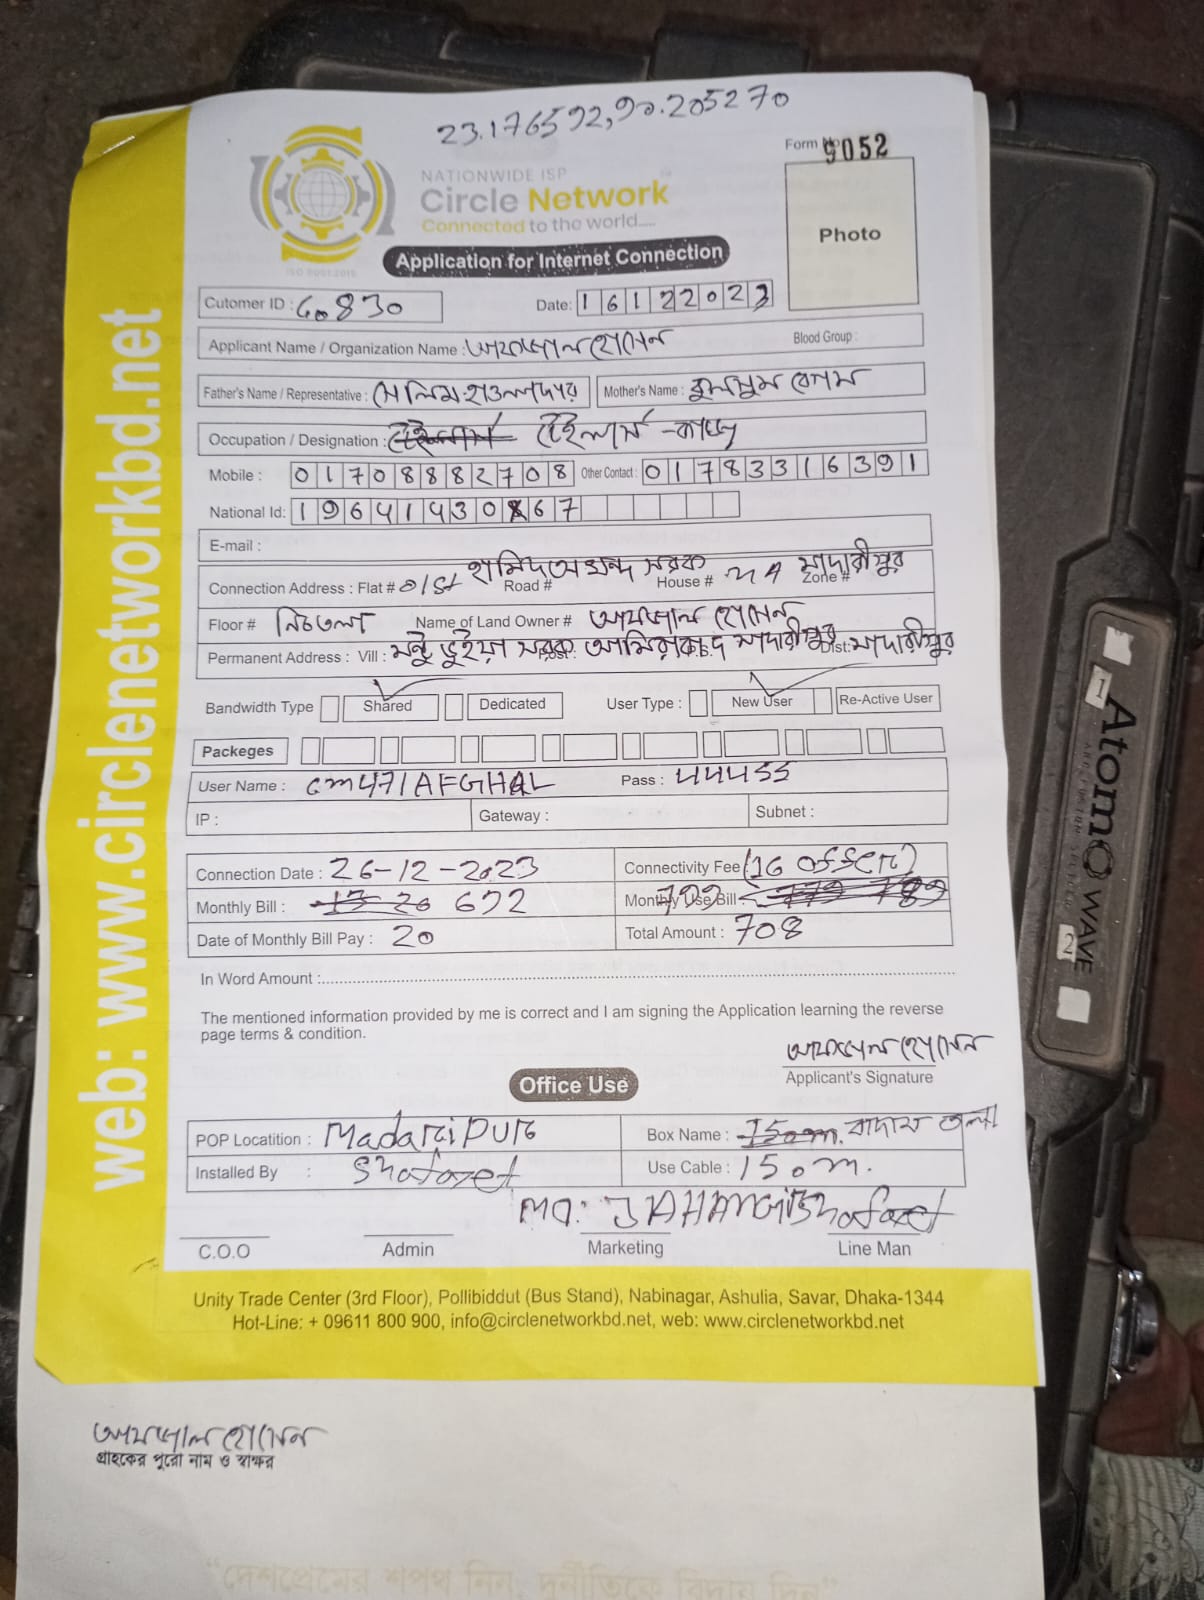 23.176592,90.205270
Form No 9052
NATIONWIDE ISP
Circle Network
Connected to the world.....
ISO 9001:2015
Photo
Application for Internet Connection
Cutomer ID : 60830 Date: 16122023
Applicant Name / Organization Name : আফজাল হোসেন Blood Group :
Father's Name / Representative : সেলিম হাওলাদার Mother's Name : কুলসুম বেগম
Occupation / Designation : টেইলার্স -
Mobile : 01708882708 Other Contact : 01783316391
National Id: 1964143067
E-mail :
Connection Address : Flat # Road # হামিদ সরক House # Zone # মাদারীপুর
Floor # নিচতলা Name of Land Owner # আফজাল হোসেন
Permanent Address : Vill : মন্টু ভূইয়া সরক আমিরাবাদ মাদারীপুর Dist: মাদারীপুর
Bandwidth Type Shared Dedicated User Type : New User Re-Active User
Packeges
User Name : cm471AFGHAL Pass : 44455
IP : Gateway : Subnet :
Connection Date : 26-12-2023 Connectivity Fee (JG offer)
Monthly Bill : 692 Monthly Use Bill :
Date of Monthly Bill Pay : 20 Total Amount : 708
In Word Amount :
The mentioned information provided by me is correct and I am signing the Application learning the reverse
page terms & condition.
আফজাল হোসেন
Applicant's Signature
Office Use
POP Locatition : Madaripur Box Name : 150m. বাদাম তলা
Installed By : Shafayet Use Cable : 150m.
MD: JAHANGIR Shafayet
C.O.O Admin Marketing Line Man
Unity Trade Center (3rd Floor), Pollibiddut (Bus Stand), Nabinagar, Ashulia, Savar, Dhaka-1344
Hot-Line: + 09611 800 900, info@circlenetworkbd.net, web: www.circlenetworkbd.net
web: www.circlenetworkbd.net
আফজাল হোসেন
গ্রাহকের পুরো নাম ও স্বাক্ষর
"দেশপ্রেমের শপথ নিন, দুর্নীতিকে বিদায় দিন"
1 Atom WAVE 2